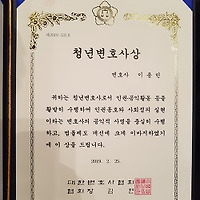 청년변호사상
변호사 이 용 민
귀하는 청년변호사로서 인권공익활동 등을
활발히 수행하여 인권옹호와 사회정의 실현
이라는 변호사의 공익적 사명을 충실히 수행
하고, 법률제도 개선에 크게 이바지하였기
에 이 상을 드립니다.
2019. 2. 25.
대한변호사협회
협회장 김 현